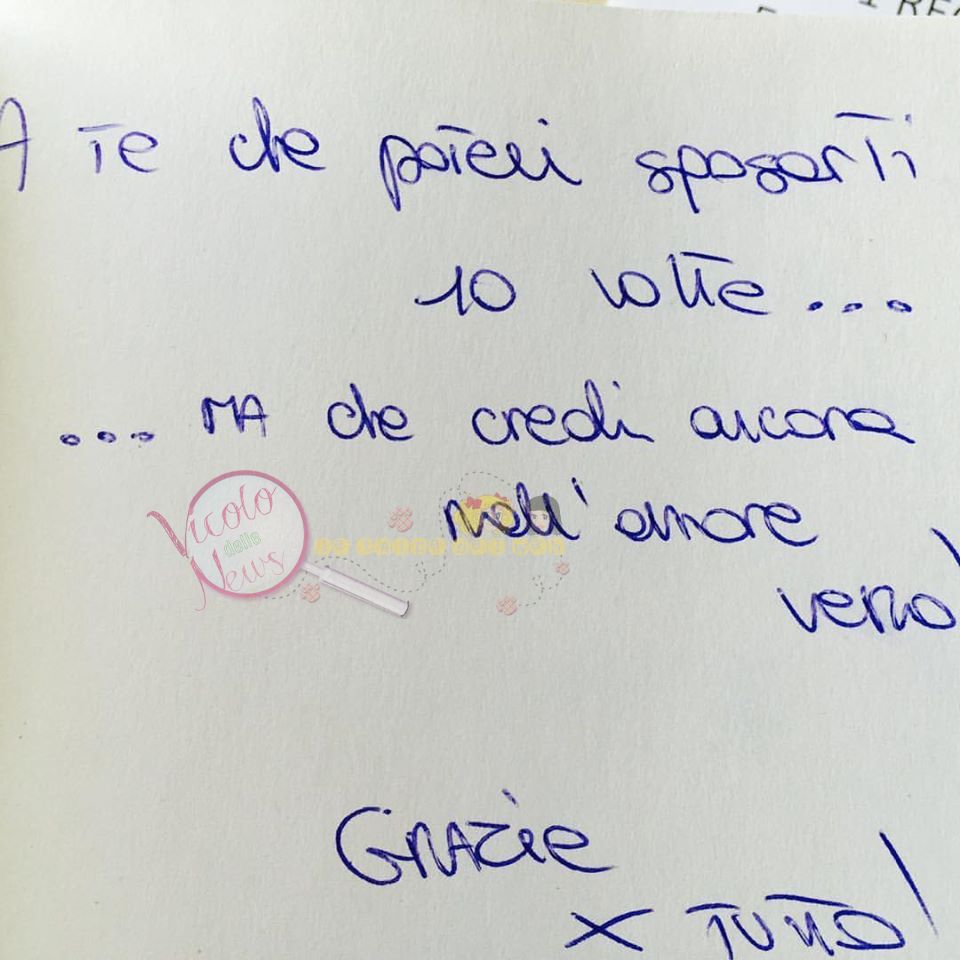 1 REG
A te che potevi sposarti
10 volte...
... MA che credi ancora
nell'amore
vero!
Vicolo
delle
News
Grazie
x tutto!